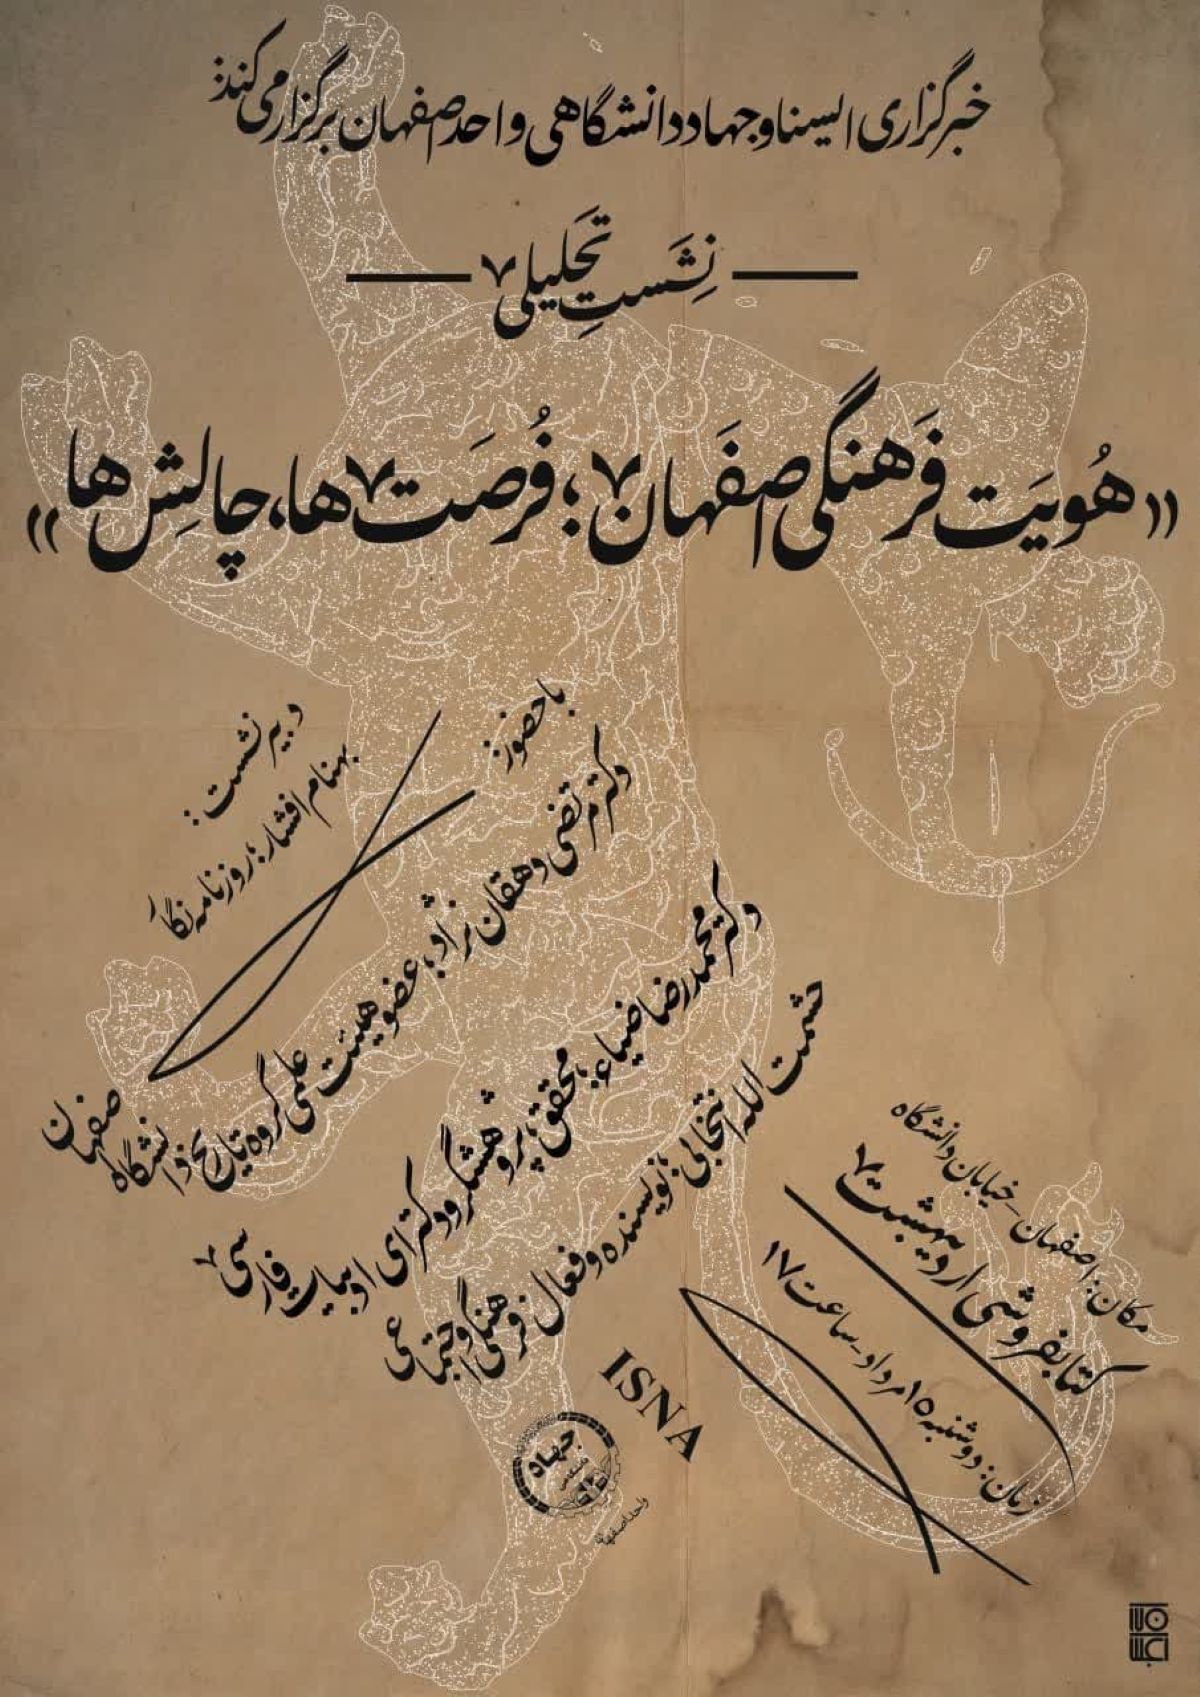 خبرگزاری ایسنا و جهاد دانشگاهی واحد اصفهان برگزار می کند:
نِشَستِ تَحلیلی
«هُویَت فَرهنگی اصفَهان؛ فُرصَت ها، چالِش ها»
دبیر نشست:
بهنام افشار؛ روزنامه نگار
با حضور:
دکتر مرتضی دهقان نژاد؛ عضو هیئت علمی گروه تاریخ دانشگاه اصفهان
دکتر محمدرضا ضیاء؛ محقق، پژوهشگر و دکترای ادبیات فارسی
حشمت الله انتخابی؛ نویسنده و فعال فرهنگی و اجتماعی
مکان: اصفهان_خیابان دانشگاه
کتابفروشی اردیبهشت
زمان: دوشنبه ۱۵ مرداد_ساعت ۱۷
ISNA
جهاد
دانشگاهی
واحد اصفهان